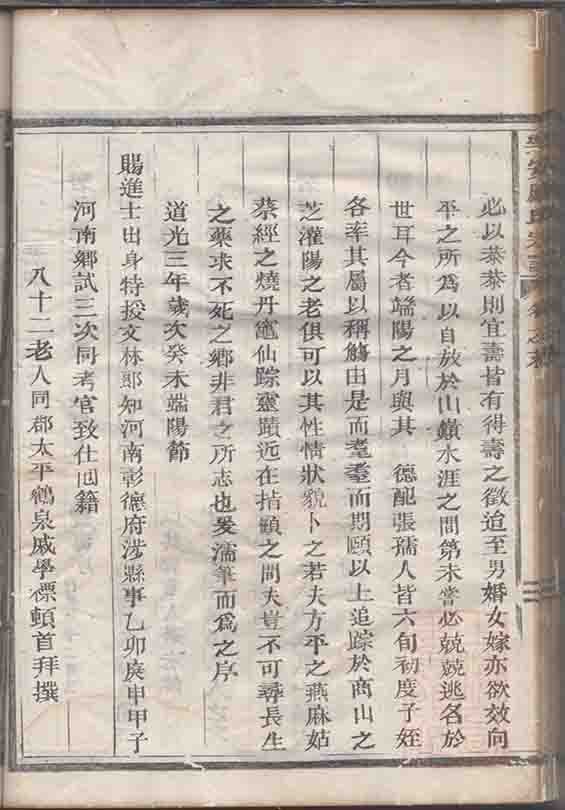 必以恭恭則宜壽皆有得壽之徵迨至男婚女嫁亦欲效向
平之所為以自放於山巔水涯之間第未嘗必兢兢逃名於
世耳今者端陽之月與其 德配張孺人皆六旬初度子姪
各率其屬以稱觴由是而耄耋而期頤以上追踪於商山之
芝灌陽之老俱可以其性情狀貌卜之若夫方平之燕麻姑
蔡經之燒丹竈仙踪靈蹟遠在指顧之間夫豈不可尋長生
之藥求不死之鄉非君之所志也爰濡筆而為之序
道光三年歲次癸未端陽節
賜進士出身特授文林郎知河南彰德府涉縣事乙卯庚申甲子
河南鄉試三次同考官致仕回籍
八十二老人同郡太平鶴泉戚學標頓首拜撰